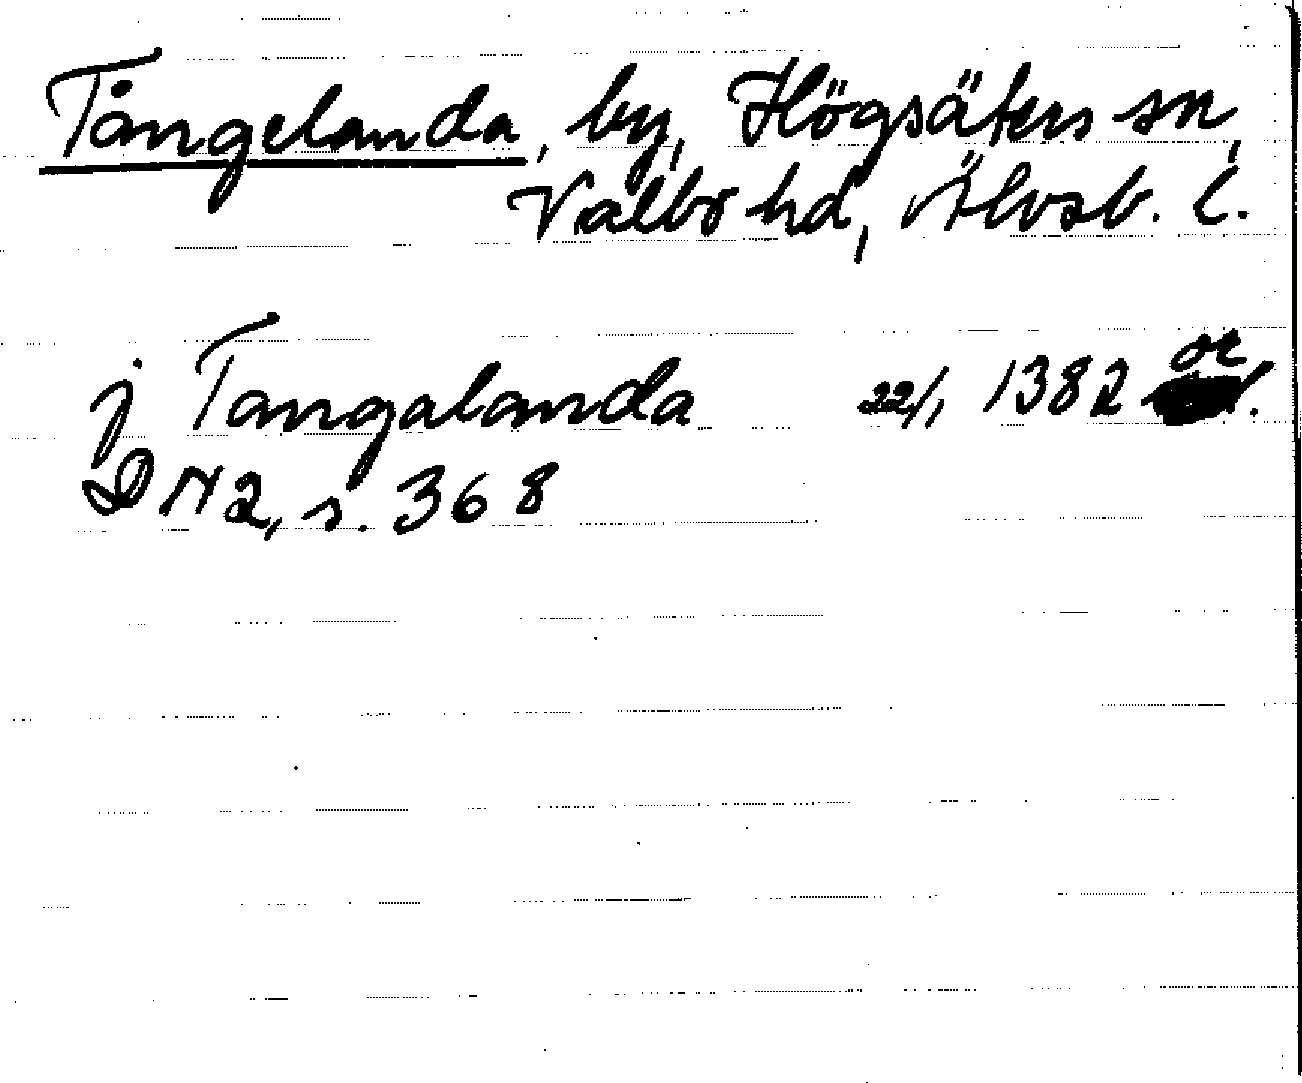 Tångelanda, by, Högsäters sn,
Valbo hd, Älvsb. l.
j Tangalanda 22/1 1382 or.
DN 2, s. 368